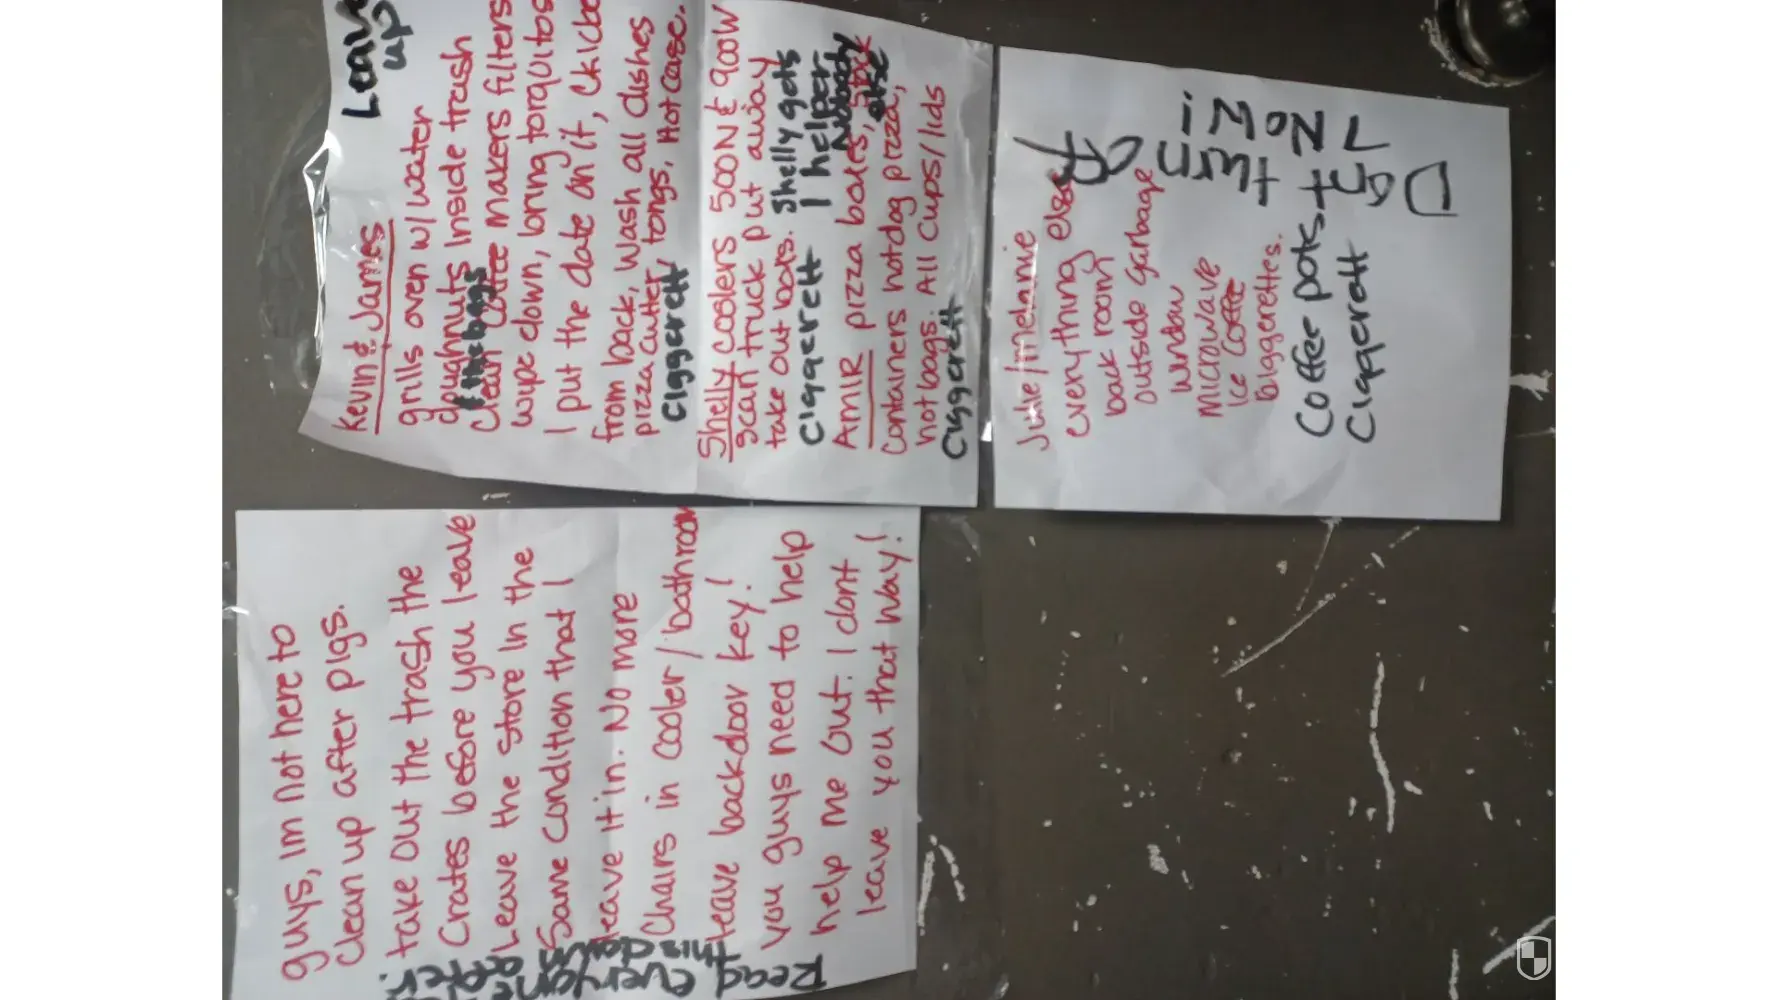 Leave
up
Kevin & James
grills oven w/water
doughnuts inside trash
Clean Coffee makers filters
& the bags
wipe down, bring torquitos
I put the date on it,
from back, wash all dishes
pizza cutter, tongs, Hotcase.
Ciggerett
Shelly coolers 500N & 900W
scan truck put away
take out boxs. Shelly gets
1 helper
Nobody
else
Ciggerett
AMIR pizza boxes, stock
Containers hotdog pizza,
hotbags. All Cups/lids
Ciggerett
Julie/melanie
everything else
back room
outside garbage
window
Microwave
Ice Coffee
biggerettes.
Coffee pots
Ciggerett
Dont
turn
off
7 Now!
guys, im not here to
Clean up after pigs.
take out the trash the
Crates before you leave
Leave the store in the
Same Condition that I
leave it in. No more
Chairs in Cooler / bathroom
leave backdoor key!
you guys need to help
help me out. I dont
leave you that way!
Read everyone
this down after.